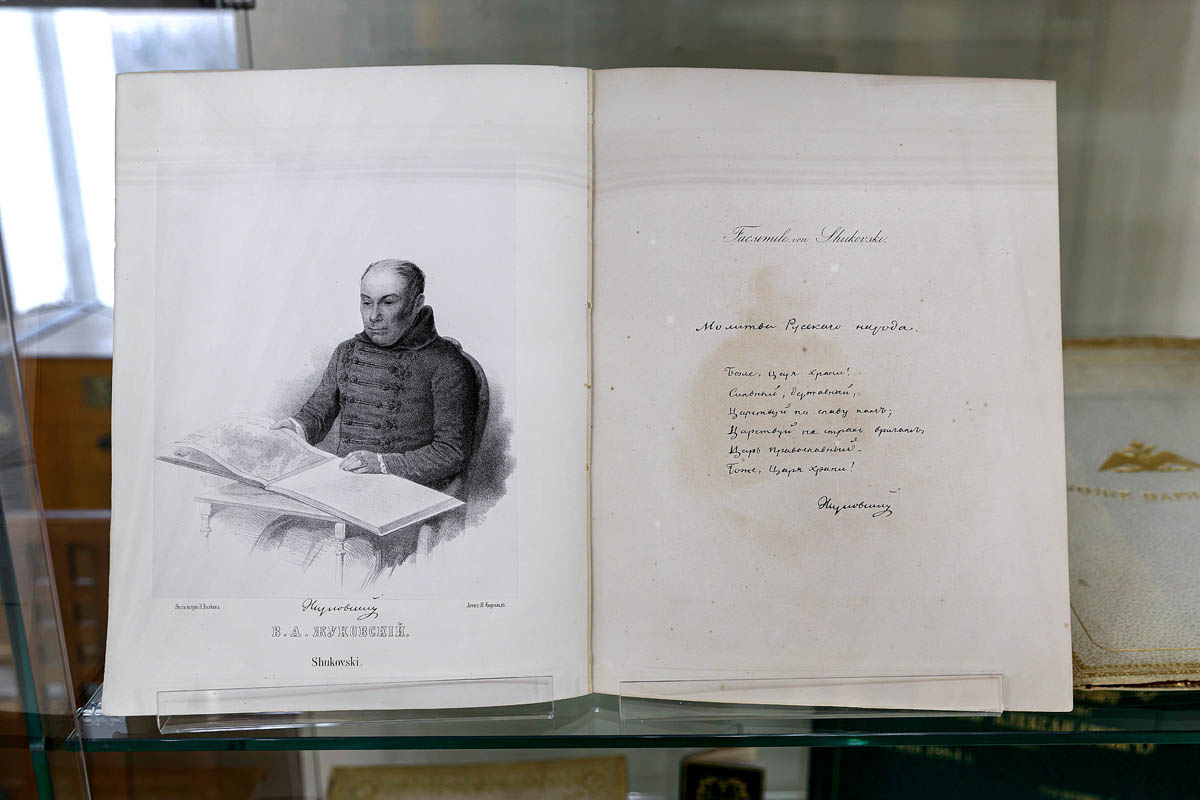 Жуковскій
В. А. ЖУКОВСКІЙ.
Shukovski.
Facsimile von Shukovski.
Молитва Русскаго народа.
Боже, Царя храни!
Сильный, державный,
Царствуй на славу намъ;
Царствуй на страхъ врагамъ,
Царь православный.
Боже, Царя храни!
Жуковскій